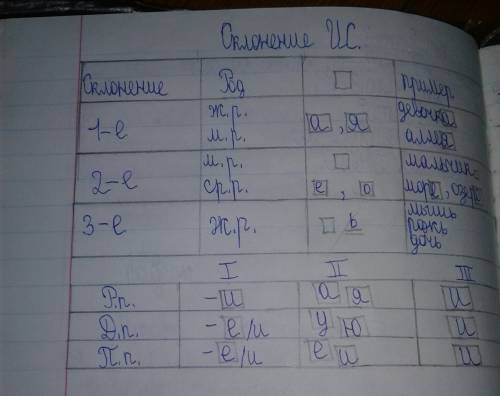 Склонение ИС.
Склонение Род □ пример
1-е ж.р. м.р. а, я девочка аллея
2-е м.р. ср.р. □ е, о мальчик море, озеро
3-е ж.р. □ ь мышь рожь дочь
I II III
Р.п. -и а я и
Д.п. -е/и у ю и
П.п. -е/и е и и